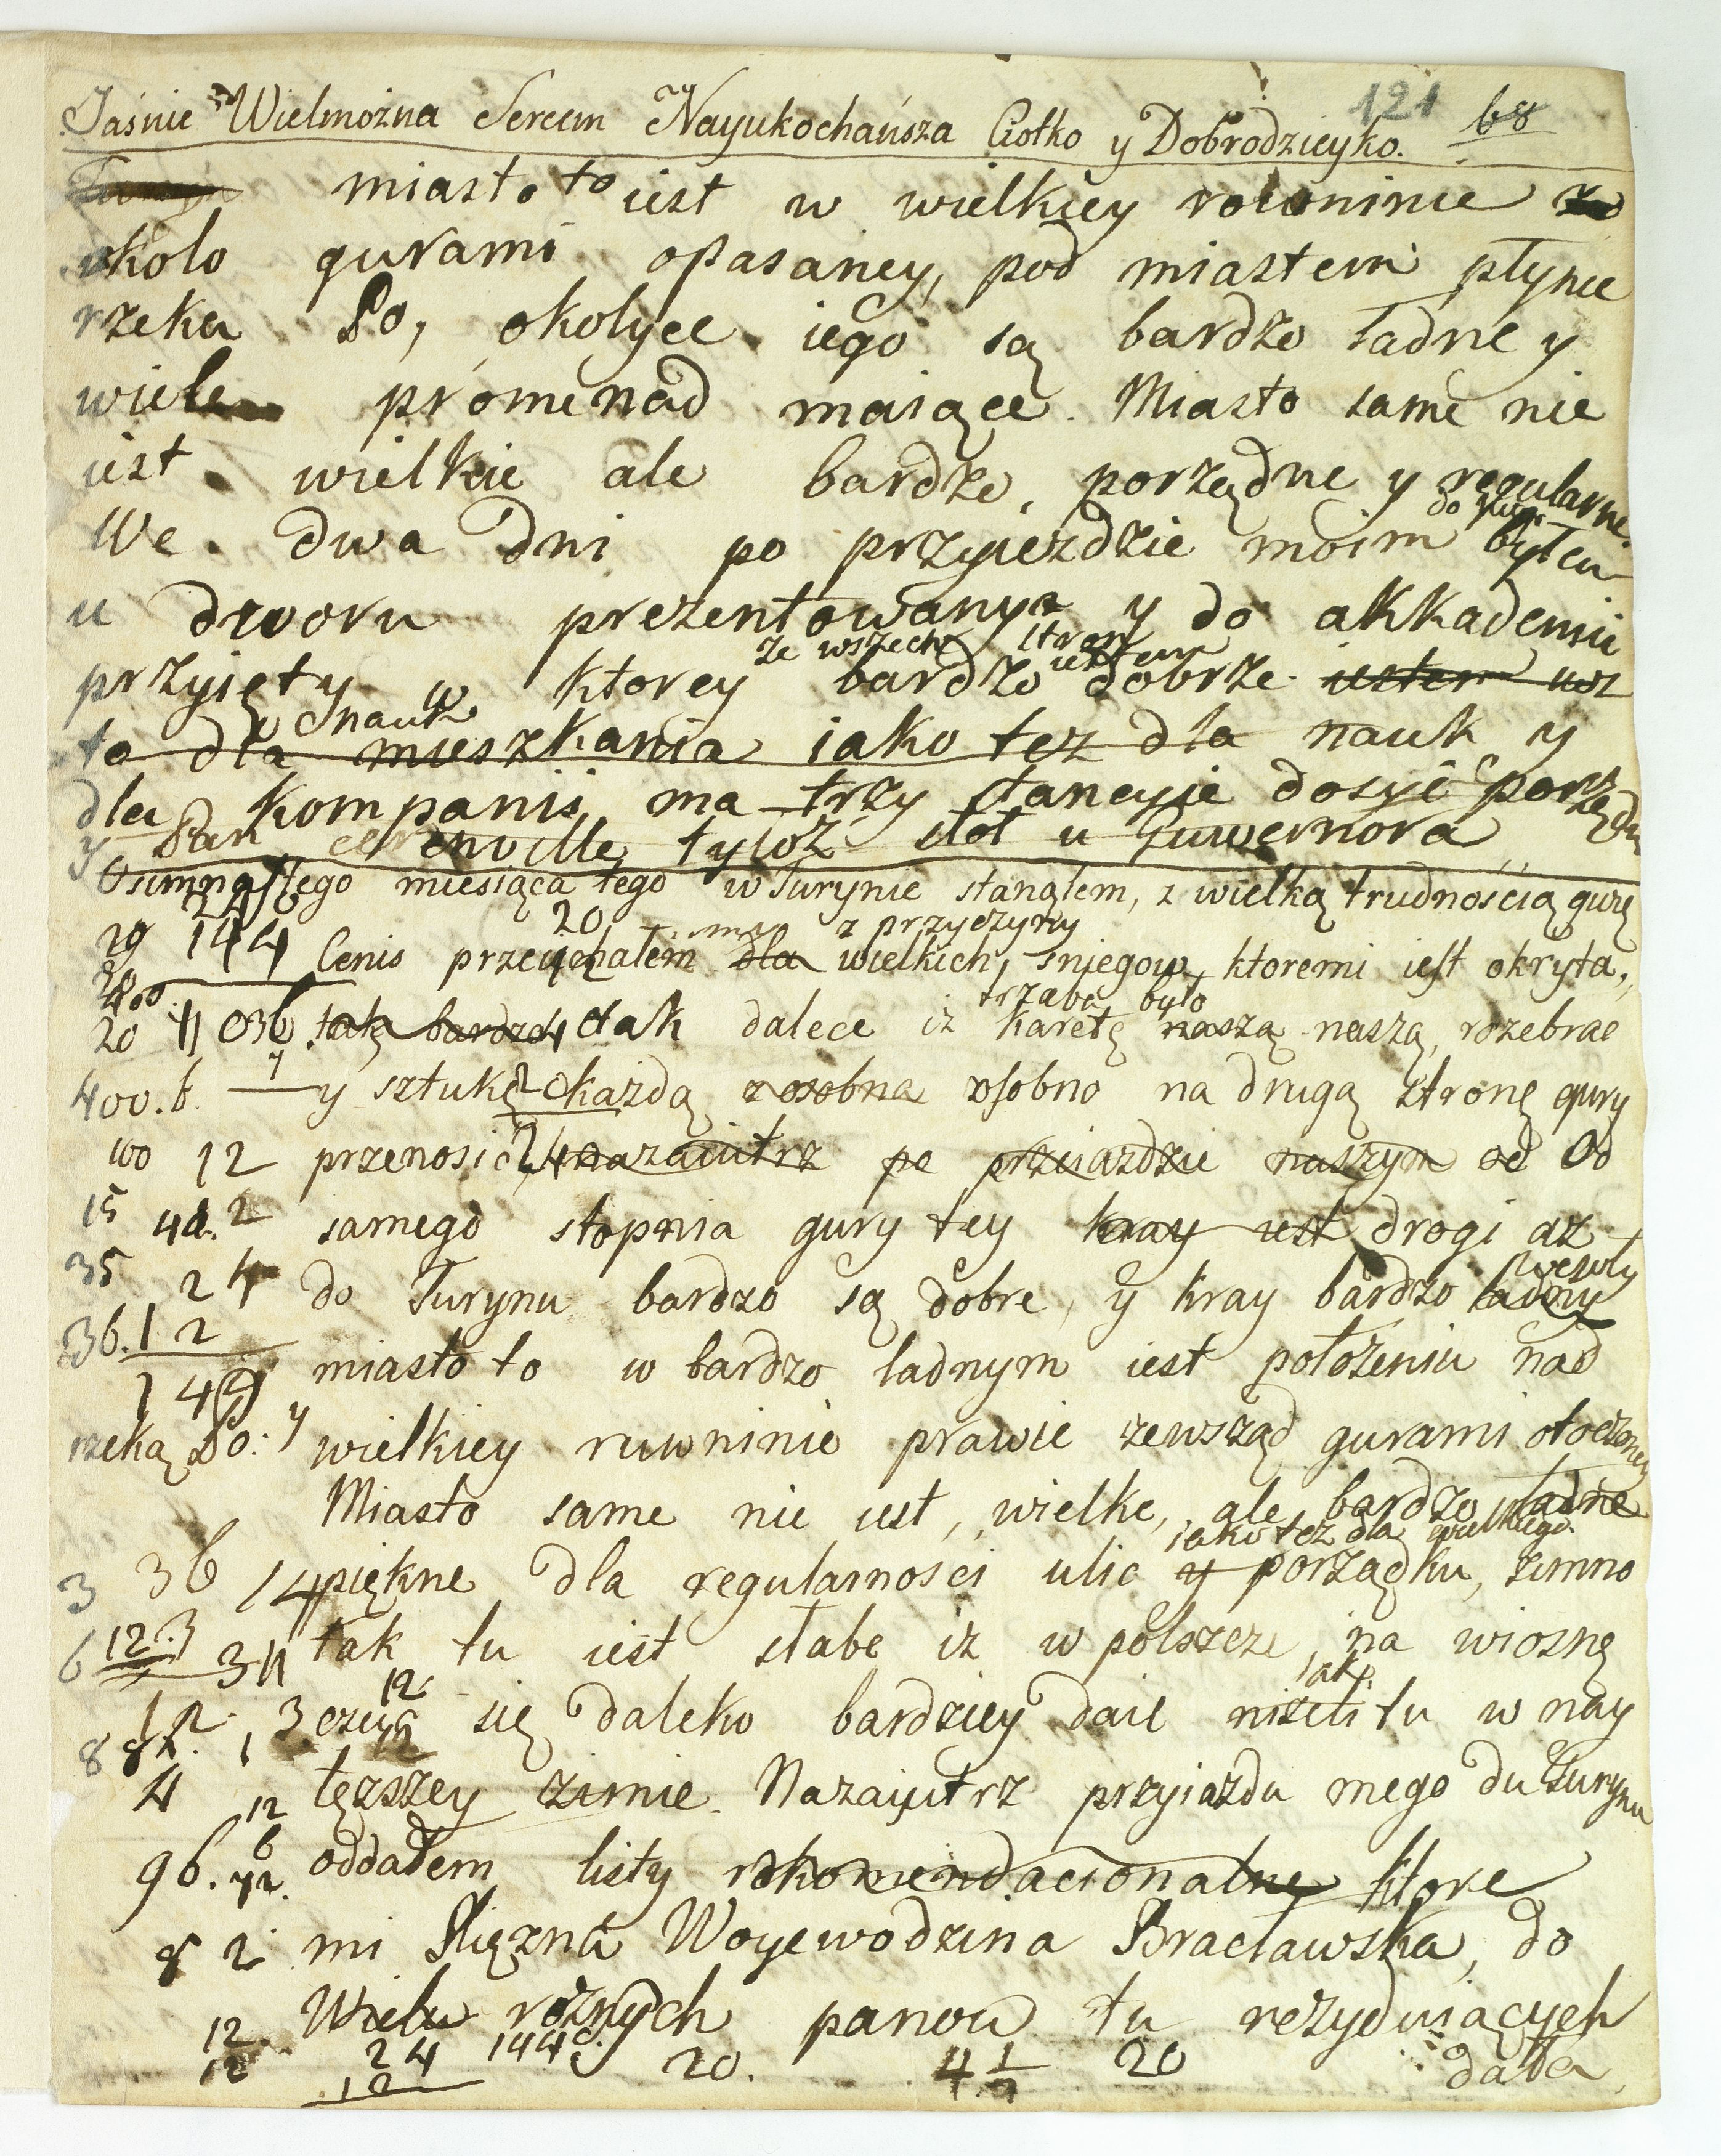 121 68
Jaśnie Wielmożna Sercem Nayukochańsza Ciotko y Dobrodzieyko.
miasto to iest w wielkiey rowninie
okolo gurami opasaney, pod miastem płynie
rzeka Po, okolyce iego są bardzo ładne y
wiele promenad maiące. Miasto same nie
iest wielkie ale bardzo porządne y regularne.
We dwa dni po przyieździe moim byłem
u dworu prezentowany y do akkademii
ze wszech stron iestem
przyięty w ktorey bardzo dobrze iestem
nauk
to dla mieszkania iako tez dla nauk y
dla kompanii, ma trzy stancyie dosyć porządn
y Pan tyloż stoł u Guwernora
Osimnastego miesiąca tego w Turynie stanąlem, z wielką trudnością gurę
29 144 20 z przyczyny
Cenis przeiechałem dla wielkich, sniegow, ktoremi iest okryta,
400 trzaba było
20 tak bardzo tak dalece iz karetę naszą naszą, rozebrac
400. y sztukę każdą z osobna osobno na drugą stronę gury
12 przenosić nazaiutrz po przyiazdzie naszym od Od
15 samego stopnia gury tey kray iest drogi az
wesoły
35 24 do Turynu bardzo są dobre, y kray bardzo ładny
36. 12 miasto to w bardzo ladnym iest położeniu nad
rzeką Po: y wielkiey ruwninie prawie zewsząd gurami otoczoney
Miasto same nie iest, wielke, ale bardzo ładne
iako tez dla wielkiego
3 36 14 piękne dla regularnosci ulic y porządku, zimno
6 12.3 tak tu iest słabe iz w polszcze, na wiosnę
iak
12 3 czuć się daleko bardziey daie niżeli tu w nay
8 82. 1 12
4 12 tęższey zimie. Nazaiutrz przyiazdu mego du Turynu
96. 72. oddałem listy rekomendacionalne ktore
8 2 mi Xiężna Woyewodzina Bracławska, do
12 Wielu rożnych panow tu rezyduiących
12 24 144 20. 4 1/2 20 dała
12